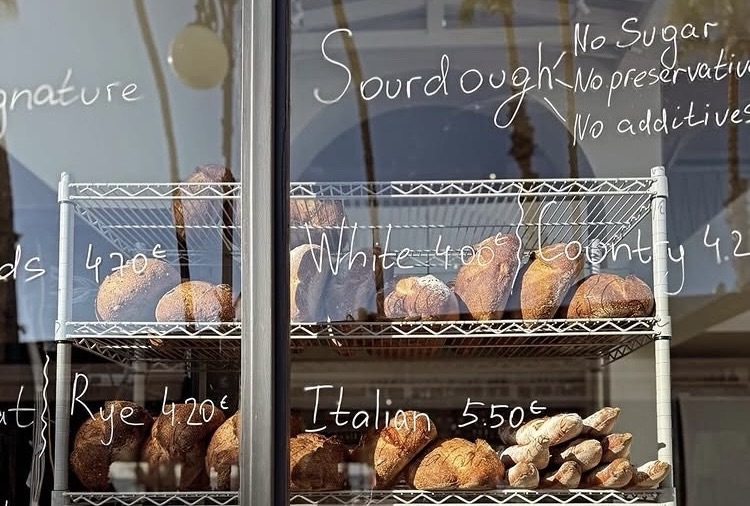 Sourdough
No Sugar
No preservativ
No additives
gnature
ds 4.70€
White 4.00€
Country 4.2
at
Rye 4.20€
Italian 5.50€